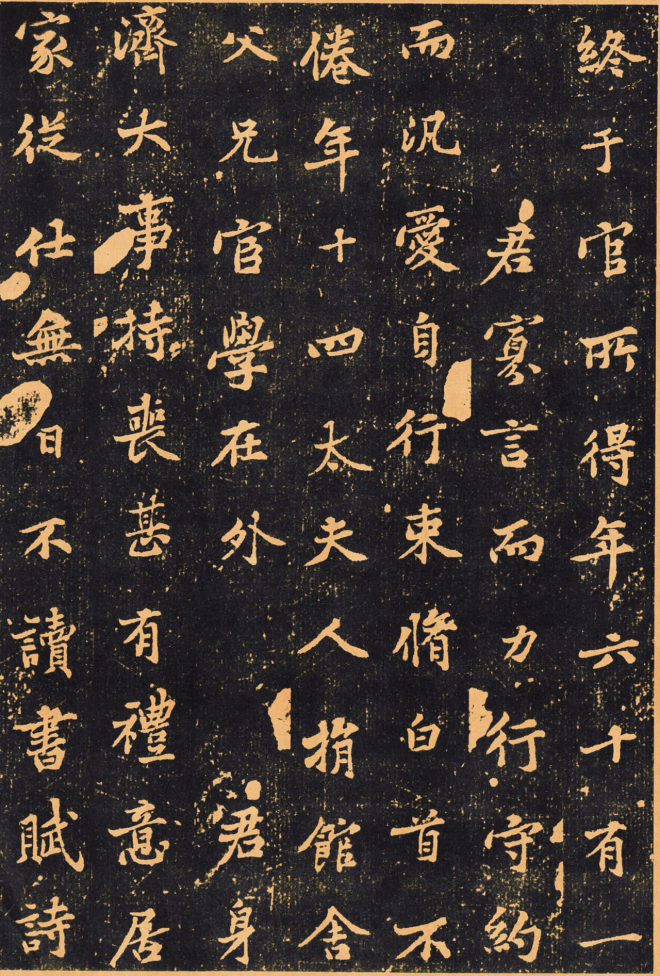 終于官所得年六十有一
君寡言而力行守約
而汎愛自行束脩白首不
倦年十四太夫人捐館舍
父兄官學在外君身
濟大事持喪甚有禮意居
家從仕無日不讀書賦詩